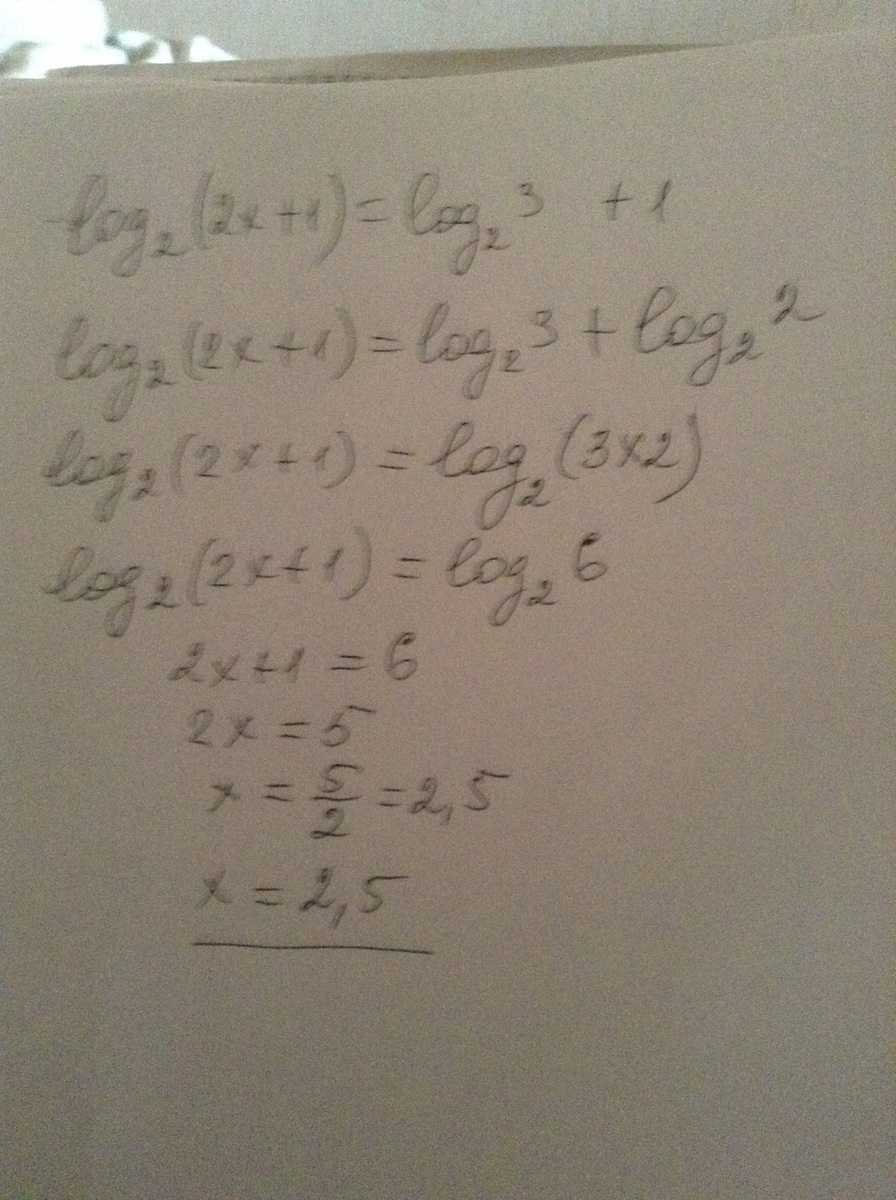 log₂(2x+1)=log₂3 +1
log₂(2x+1)=log₂3+log₂2
log₂(2x+1)=log₂(3x2)
log₂(2x+1)=log₂6
2x+1=6
2x=5
x=5/2=2,5
x=2,5